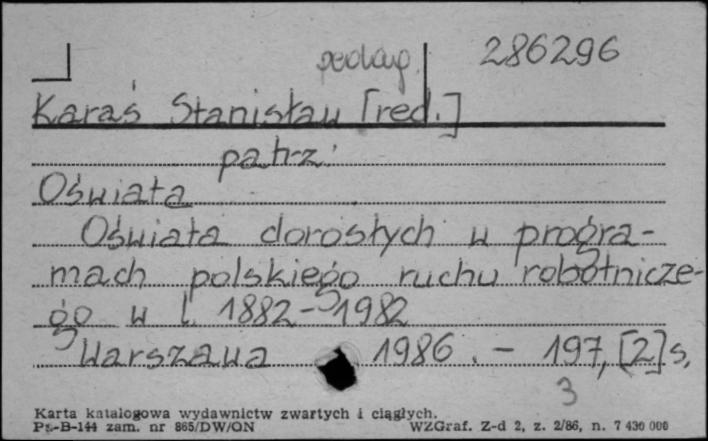 pedag. 286296
Karaś Stanisław [red.]
patrz:
Oświata
Oświata dorosłych w progra-
mach polskiego ruchu robotnicze-
go w l. 1882-1982
Warszawa 1986. - 197, [2] s.
3
Karta katalogowa wydawnictw zwartych i ciągłych.
Pu-B-144 zam. nr 865/DW/ON WZGraf. Z-d 2, z. 2/86, n. 7 430 000